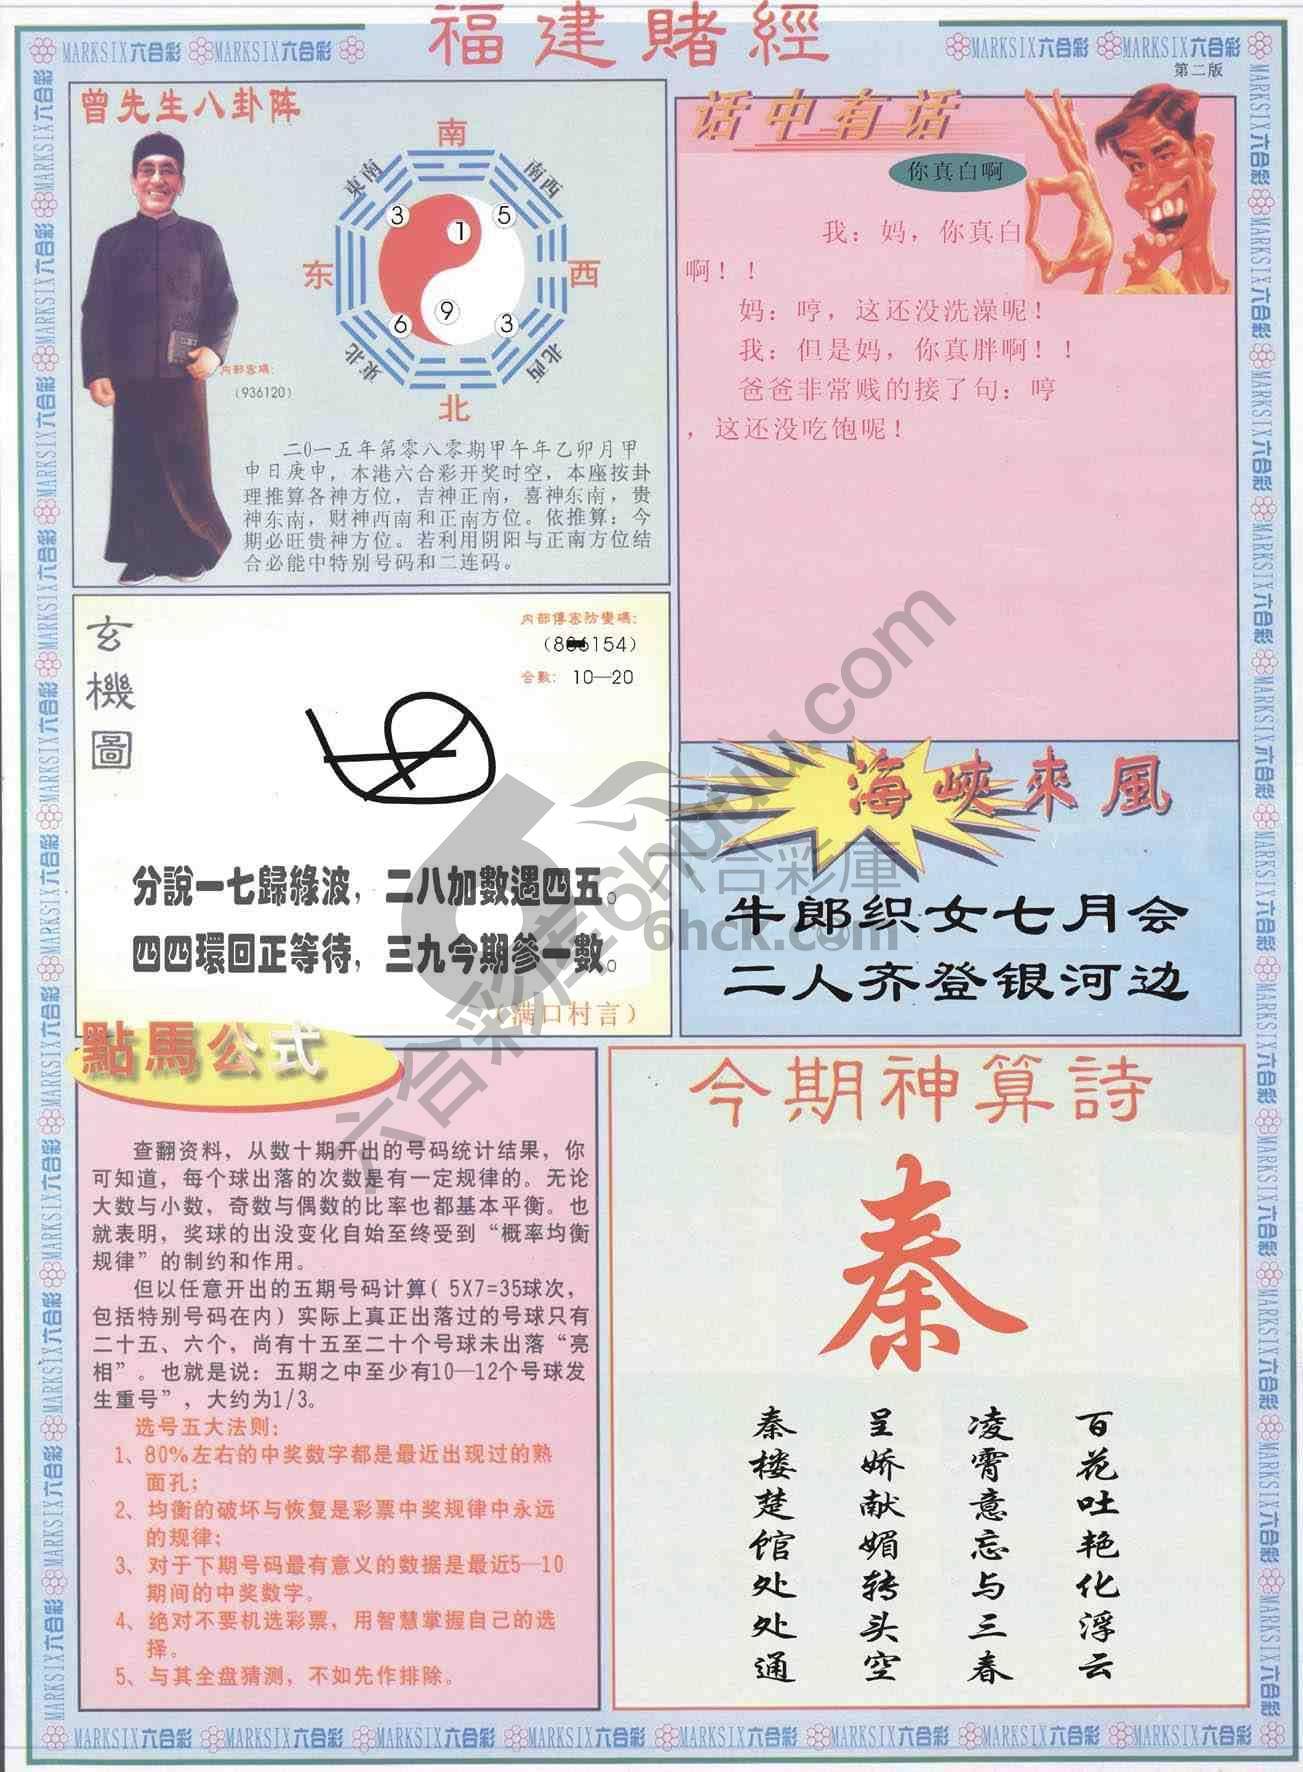 福建賭經
MARKSIX六合彩 MARKSIX六合彩
MARKSIX六合彩 MARKSIX六合彩
第二版
曾先生八卦阵
南
東南
南西
3
1
5
东
西
6
9
3
東北
北西
北
内部密碼：
（936120）
二0一五年第零八零期甲午年乙卯月甲
申日庚申，本港六合彩开奖时空，本座按卦
理推算各神方位，吉神正南，喜神东南，贵
神东南，财神西南和正南方位。依推算：今
期必旺贵神方位。若利用阴阳与正南方位结
合必能中特别号码和二连码。
话中有话
你真白啊
我：妈，你真白
啊！！
妈：哼，这还没洗澡呢！
我：但是妈，你真胖啊！！
爸爸非常贱的接了句：哼
，这还没吃饱呢！
玄機圖
内部傳密防變碼：
154）
合數： 10—20
分說一七歸綠波，二八加數遇四五。
四四環回正等待，三九今期參一數。
（满口村言）
海峽來風
牛郎织女七月会
二人齐登银河边
點馬公式
查翻资料，从数十期开出的号码统计结果，你
可知道，每个球出落的次数是有一定规律的。无论
大数与小数，奇数与偶数的比率也都基本平衡。也
就表明，奖球的出没变化自始至终受到“概率均衡
规律”的制约和作用。
但以任意开出的五期号码计算( 5X7=35球次，
包括特别号码在内）实际上真正出落过的号球只有
二十五、六个，尚有十五至二十个号球未出落“亮
相”。也就是说：五期之中至少有10—12个号球发
生重号”，大约为1/3。
选号五大法则：
1、80%左右的中奖数字都是最近出现过的熟
面孔；
2、均衡的破坏与恢复是彩票中奖规律中永远
的规律；
3、对于下期号码最有意义的数据是最近5—10
期间的中奖数字。
4、绝对不要机选彩票，用智慧掌握自己的选
择。
5、与其全盘猜测，不如先作排除。
今期神算詩
秦
百花吐艳化浮云
凌霄意忘与三春
呈娇献媚转头空
秦楼楚馆处处通
六合彩库6huuu.com
六合彩庫
6hck.com
MARKSIX六合彩 MARKSIX六合彩 MARKSIX六合彩 MARKSIX六合彩 MARKSIX六合彩 MARKSIX六合彩 MARKSIX六合彩 MARKSIX六合彩